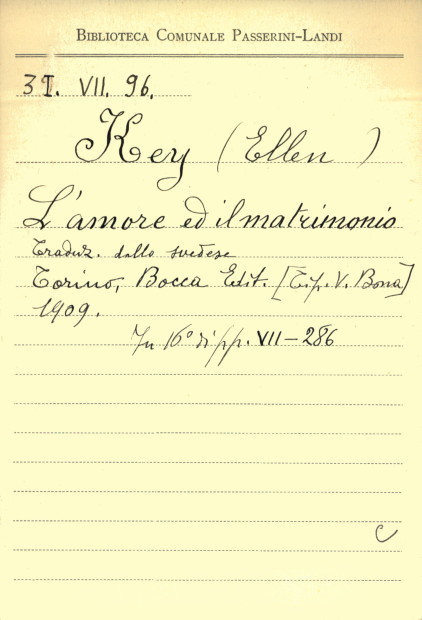 BIBLIOTECA COMUNALE PASSERINI-LANDI
3I. VII. 96.
Key (Ellen )
L'amore ed il matrimonio
Traduz. dallo svedese
Torino, Bocca Edit. [Tip. V. Bona]
1909.
In 16° di pp. VII-286
C